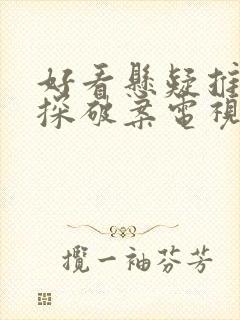 好看懸疑推
探破案電視
攬一袖芬芳